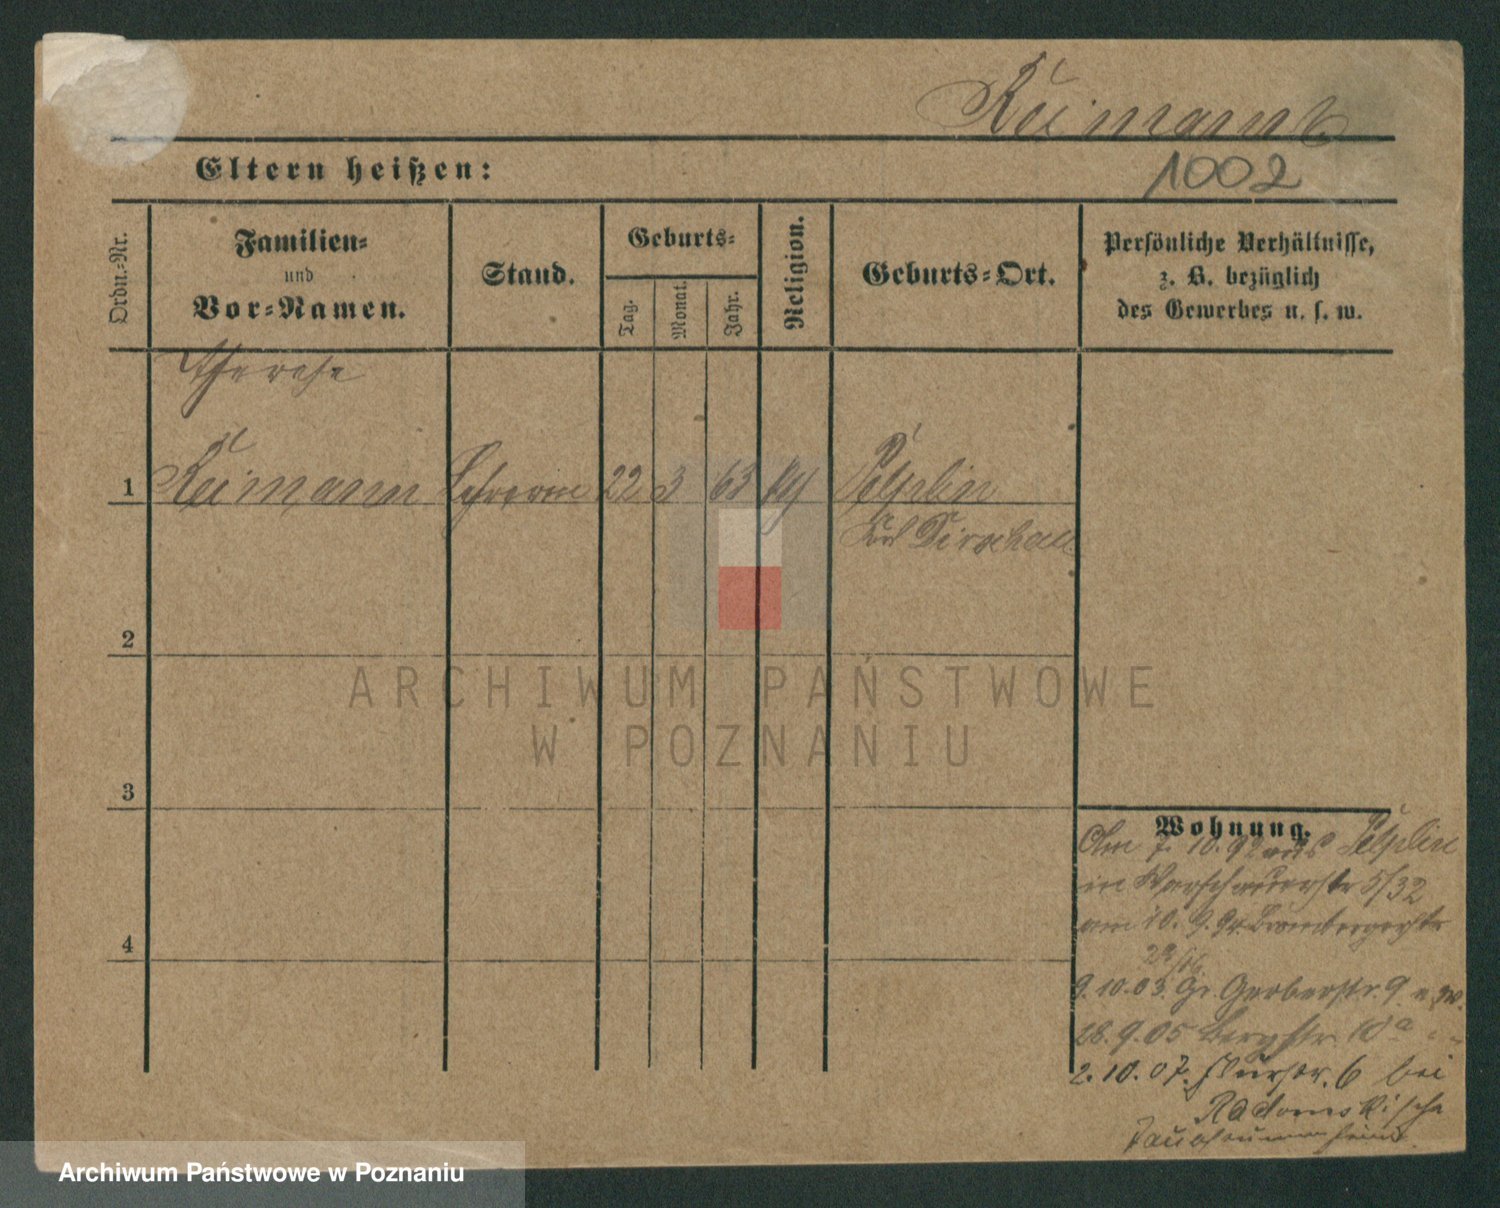 Reimann
1002
Eltern heißen:
Ordn.-Nr.
Familien-
und
Vor-Namen.
Stand.
Geburts-
Tag.
Monat.
Jahr.
Religion.
Geburts-Ort.
Persönliche Verhältnisse,
z. B. bezüglich
des Gewerbes u. s. w.
Therese
1 Reimann Lehrerin 22 3 63 Pelplin
Dirschau
2
3
4
ARCHIWUM PAŃSTWOWE
W POZNANIU
Wohnung.
Am 7. 10. 92 aus Pelplin
in Warschauerstr 5/32
am 10. 9. 94 Brombergerstr
9. 10. 03. Gr. Gerberstr. 9
28. 9. 05 Bergstr. 10a
2. 10. 07. Flurstr. 6 bei
Radomski
Archiwum Państwowe w Poznaniu